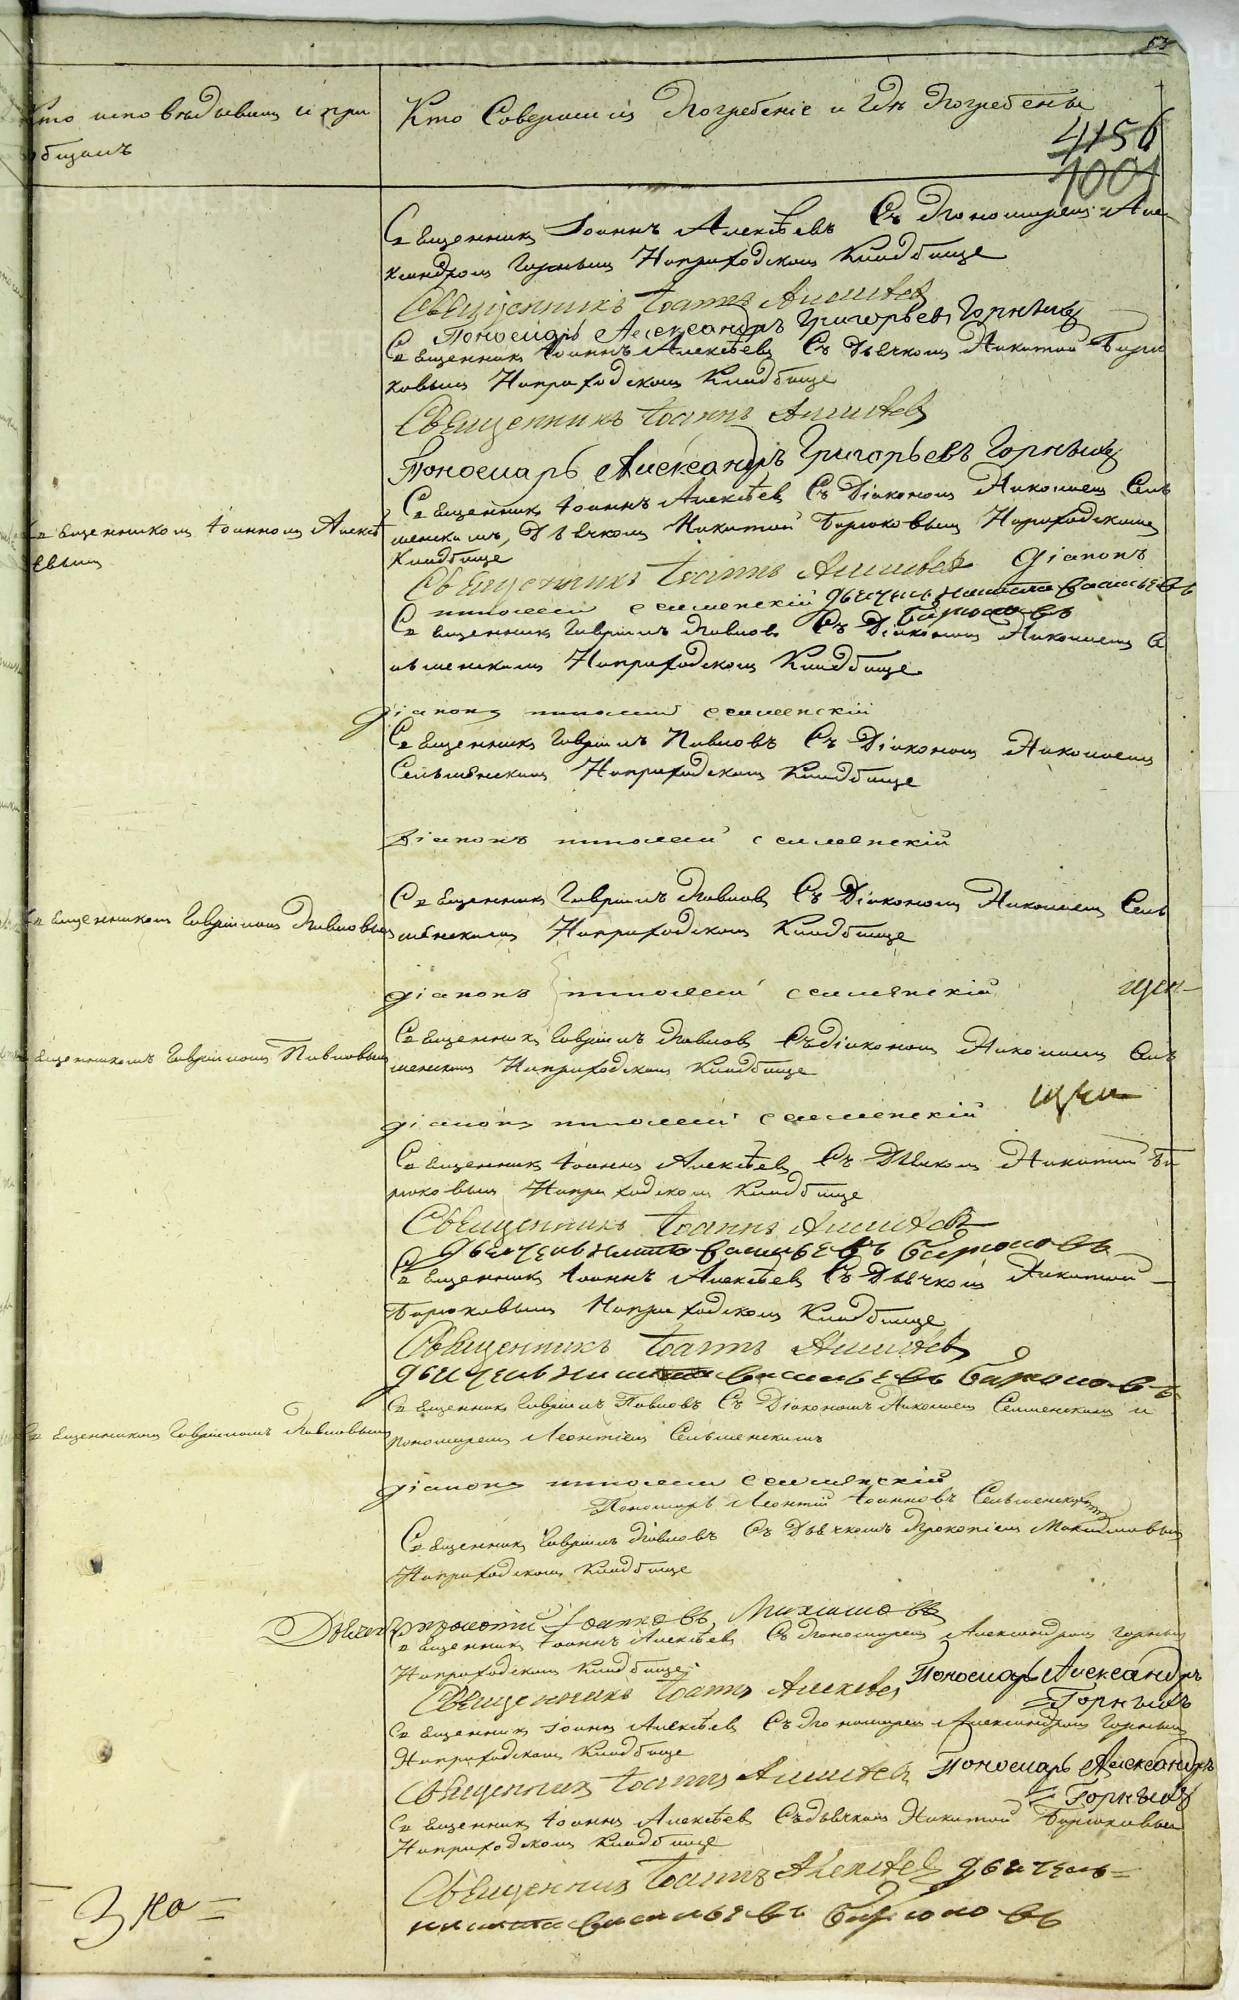 METRIKI.GASO-URAL.RU
Кто исповѣдывалъ и при
общалъ
Кто Совершилъ Погребеніе и Гдѣ Погребены
4156
1001
Священникъ Іоаннъ Алексѣевъ Съ Пономаремъ Але
ксандромъ Горныхъ На приходскомъ Кладбище
Священникъ Іоаннъ Алексѣевъ
Пономарь Александръ Григорьевъ Горныхъ
Священникъ Іоаннъ Алексѣевъ Съ Дьячкомъ Никитой Бирю
ковымъ На приходскомъ Кладбище
Священникъ Іоаннъ Алексѣевъ
Пономарь Александръ Григорьевъ Горныхъ
Священникомъ Іоанномъ Алексѣ
евымъ
Священникъ Іоаннъ Алексѣевъ Съ Діакономъ Николаемъ Сель
менскимъ, Дьячкомъ Никитой Бирюковымъ На приходскомъ
Кладбище
Священникъ Іоаннъ Алексѣевъ Діаконъ
николай селменскій дьячекъ никита васильевъ
бирюковъ
Священникъ Гавріилъ Павловъ Съ Діакономъ Николаемъ Се
льменскимъ На приходскомъ Кладбище
діаконъ николай селменскій
Священникъ Гавріилъ Павловъ Съ Діакономъ Николаемъ
Сельменскимъ На приходскомъ Кладбище
діаконъ николай селменскій
Священникомъ Гавріиломъ Павловымъ
Священникъ Гавріилъ Павловъ Съ Діакономъ Николаемъ Сель
менскимъ На приходскомъ Кладбище
діаконъ николай селменскій
Священникомъ Гавріиломъ Павловымъ
Священникъ Гавріилъ Павловъ Съ Діакономъ Николаемъ Сель
менскимъ На приходскомъ Кладбище
діаконъ николай селменскій
Священникъ Іоаннъ Алексѣевъ Съ Дьячкомъ Никитой Би
рюковымъ На приходскомъ Кладбище
Священникъ Іоаннъ Алексѣевъ
дьячекъ никита васильевъ бирюковъ
Священникъ Іоаннъ Алексѣевъ Съ Дьячкомъ Никитой
Бирюковымъ На приходскомъ Кладбище
Священникъ Іоаннъ Алексѣевъ
дьячекъ никита васильевъ бирюковъ
Священникомъ Гавріиломъ Павловымъ
Священникъ Гавріилъ Павловъ Съ Діакономъ Николаемъ Селменскимъ и
пономаремъ Леонтіемъ Сельменскимъ
діаконъ николай селменскій
Пономарь Леонтій Іоанновъ Сельменскій
Священникъ Гавріилъ Павловъ Съ Дьячкомъ Прокопіемъ
На приходскомъ Кладбище
Дьячекъ Прокопій Іоанновъ
Священникъ Іоаннъ Алексѣевъ Съ Пономаремъ Александромъ Горнымъ
На приходскомъ Кладбище
Священникъ Іоаннъ Алексѣевъ Пономарь Александръ
Горныхъ
Священникъ Іоаннъ Алексѣевъ Съ Пономаремъ Александромъ Горнымъ
На приходскомъ Кладбище
Священникъ Іоаннъ Алексѣевъ Пономарь Александръ
Горныхъ
Священникъ Іоаннъ Алексѣевъ Съ дьячкомъ Никитой Бирюковымъ
На приходскомъ Кладбище
Священникъ Іоаннъ Алексѣевъ дьячекъ
никита васильевъ бирюковъ